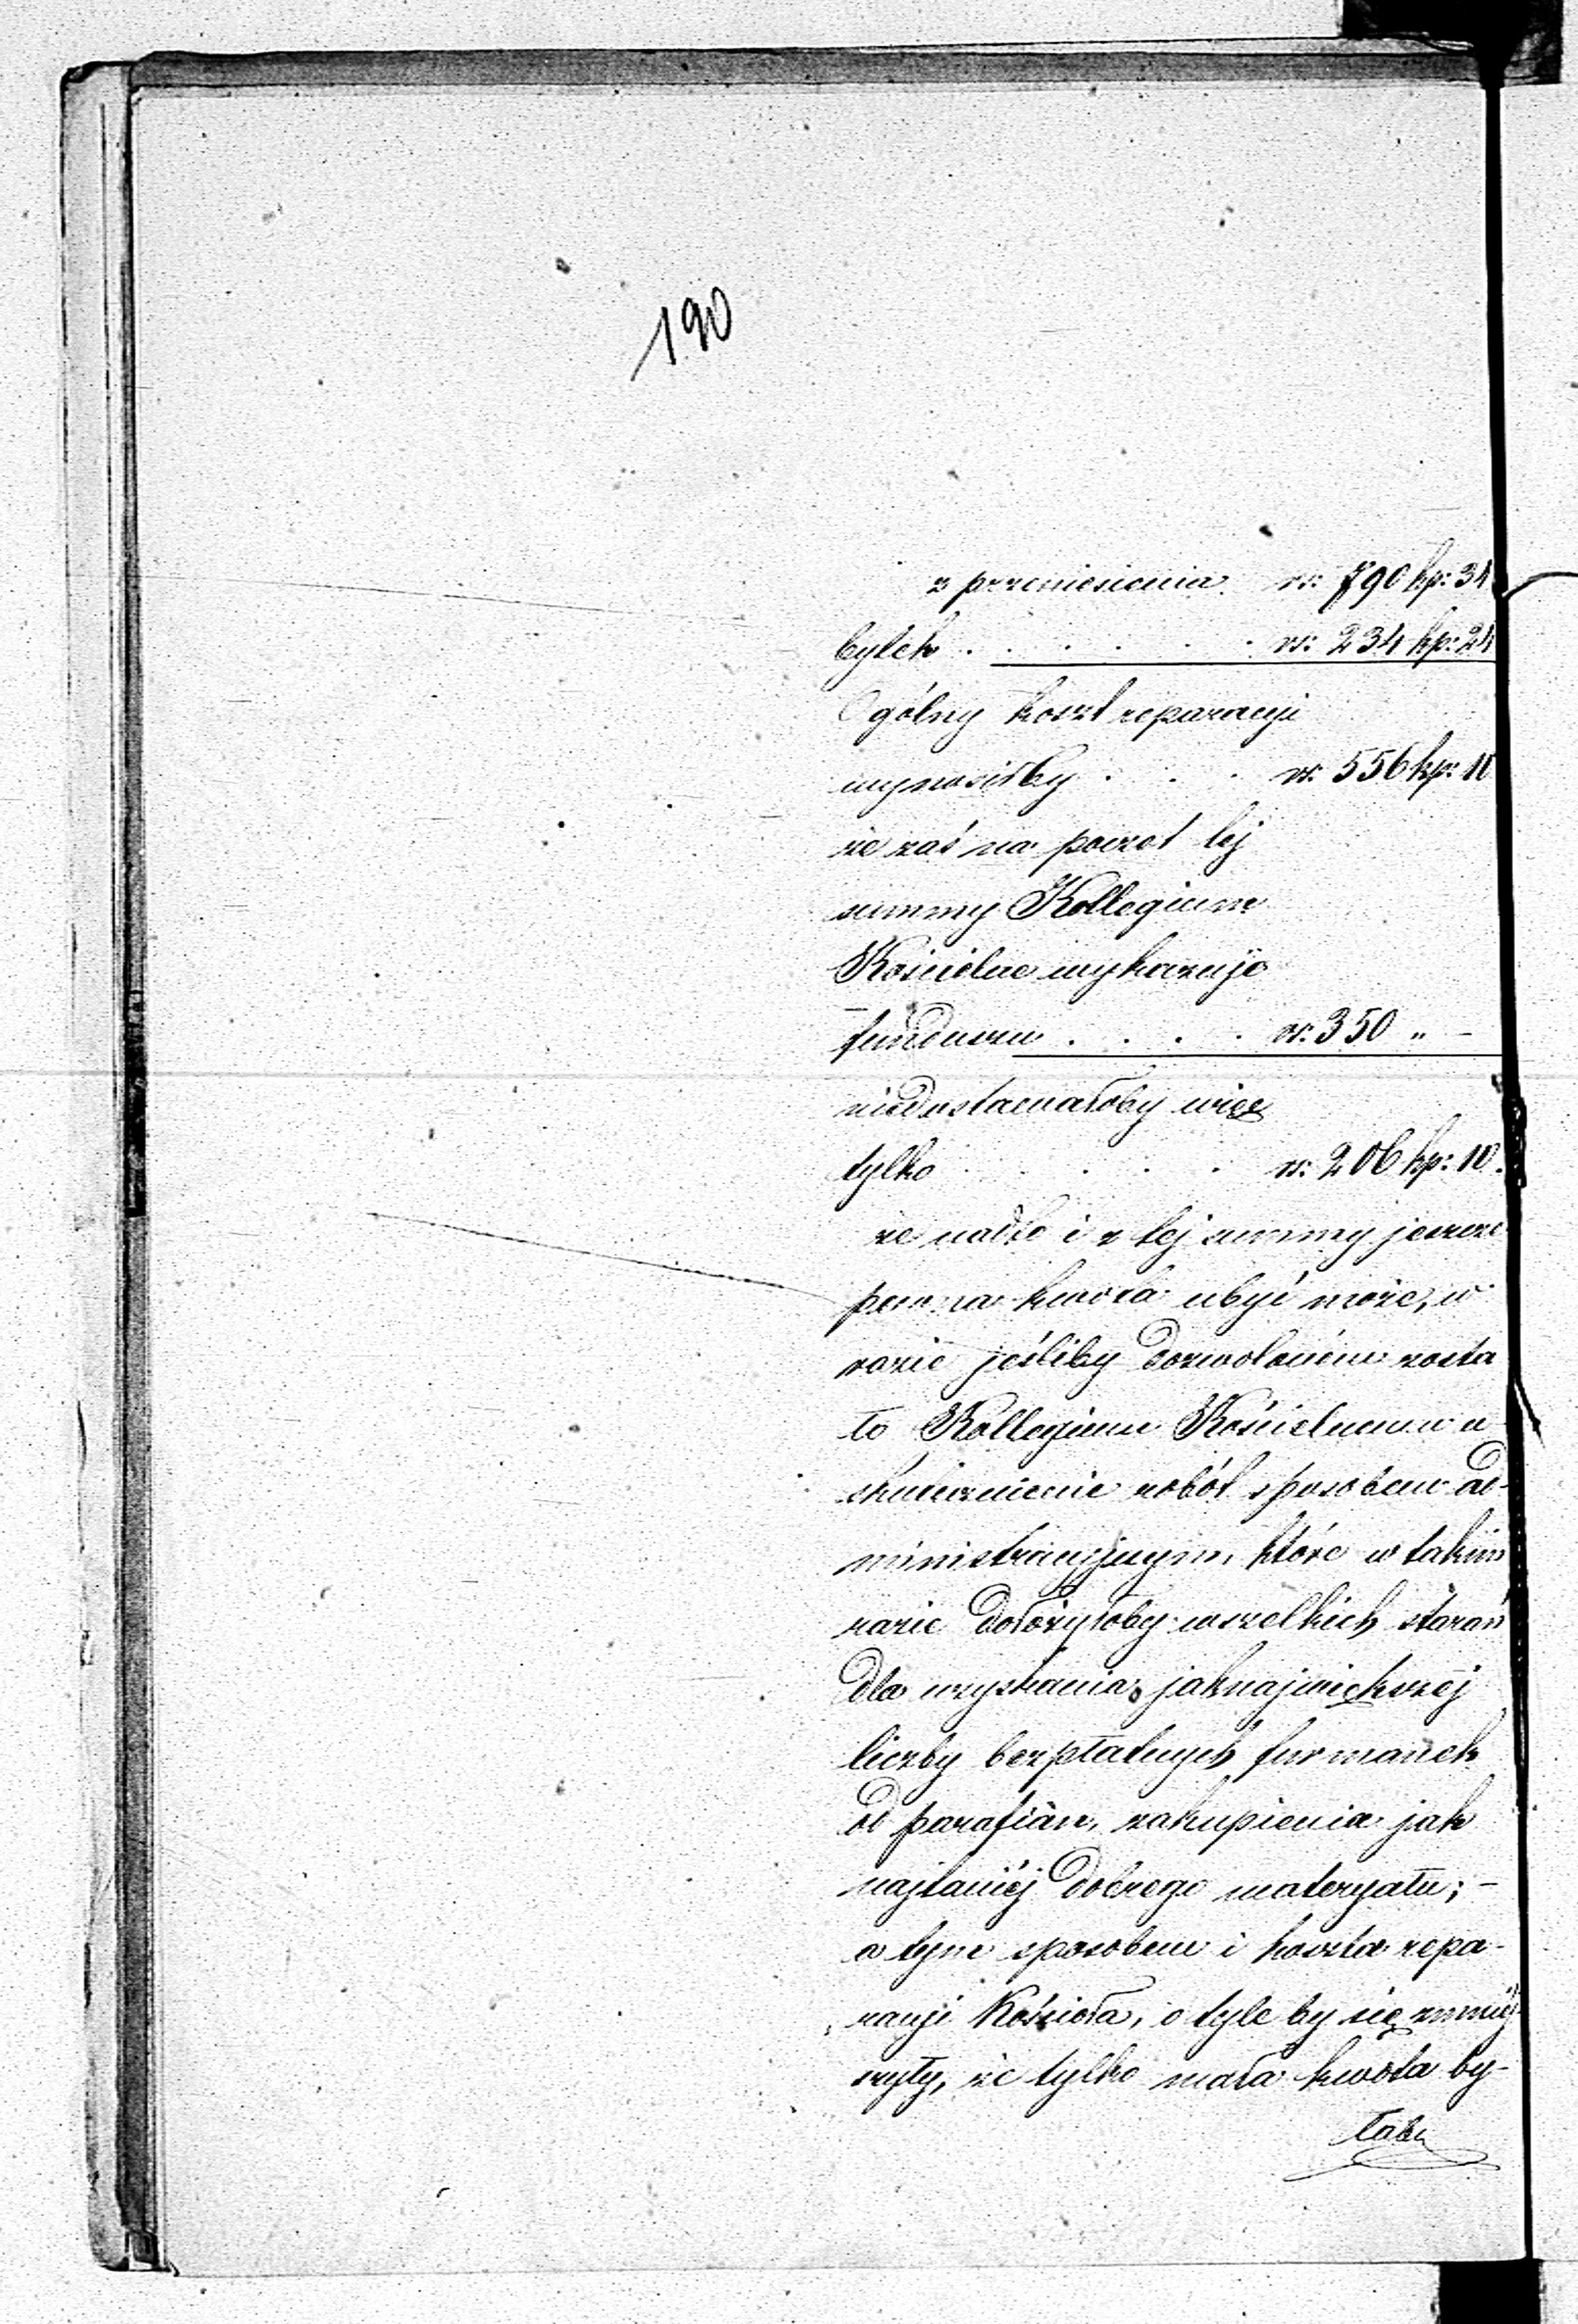 190
z przeniesienia rs: 790 kp: 34
bytek . . . . . . rs: 234 kp: 24
Ogólny koszt reparacyi
wynosiłby . . . rs: 556 kp: 10
że zaś na poczet tej
summy Kollegium
Kościelne wykazuje
funduszu . . . . rs: 350 „ –
niedostawałoby więc
tylko . . . . . rs: 206 kp: 10.
że nadto i z tej summy jeszcze
pewna kwota ubyć może, w
razie jeśliby dozwoloném zosta
ło Kollegium Kościelnemu u-
skutecznienie robót sposobem ad-
ministracyjnym, które w takim
razie dołożyłoby wszelkich starań
dla uzyskania jaknajwiększéj
liczby bezpłatnych furmanek
od parafian, zakupienia jak
najtaniéj dobrego materyału; –
a tym sposobem i koszta repa-
racyi Kościoła, o tyle by się zmniéj-
szyły, że tylko mała kwota by-
łaby